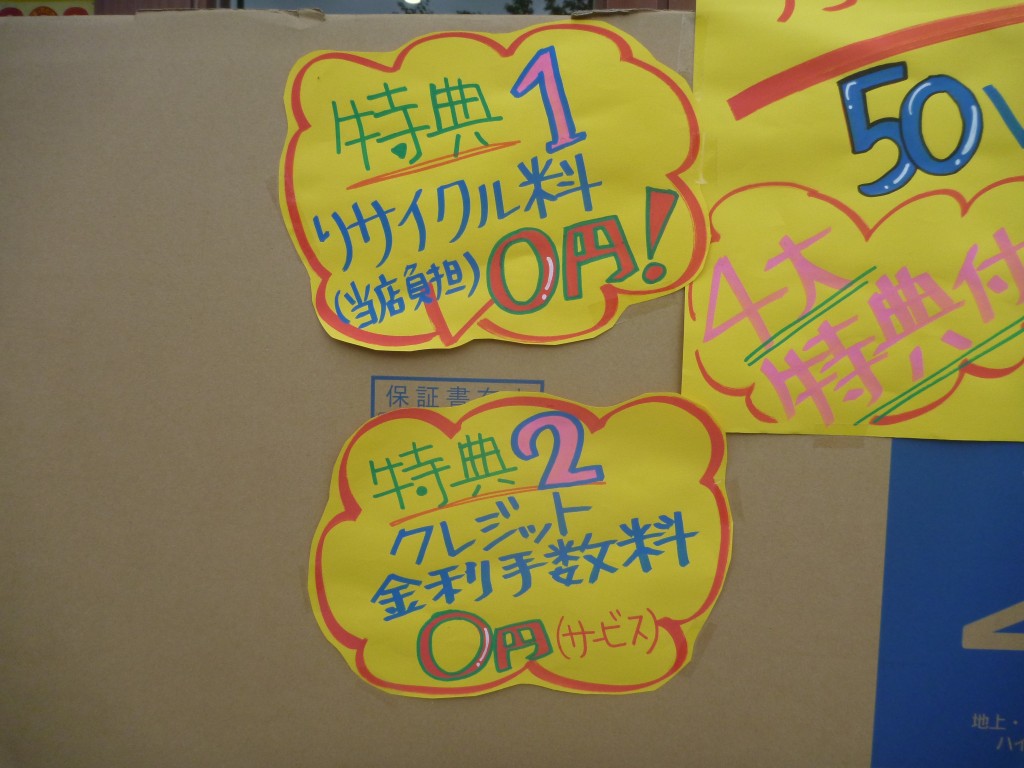 特典1
リサイクル料
(当店負担)0円!
保証書
特典2
クレジット
金利手数料
0円(サービス)
50
4大
特典付
地上・
ハイ